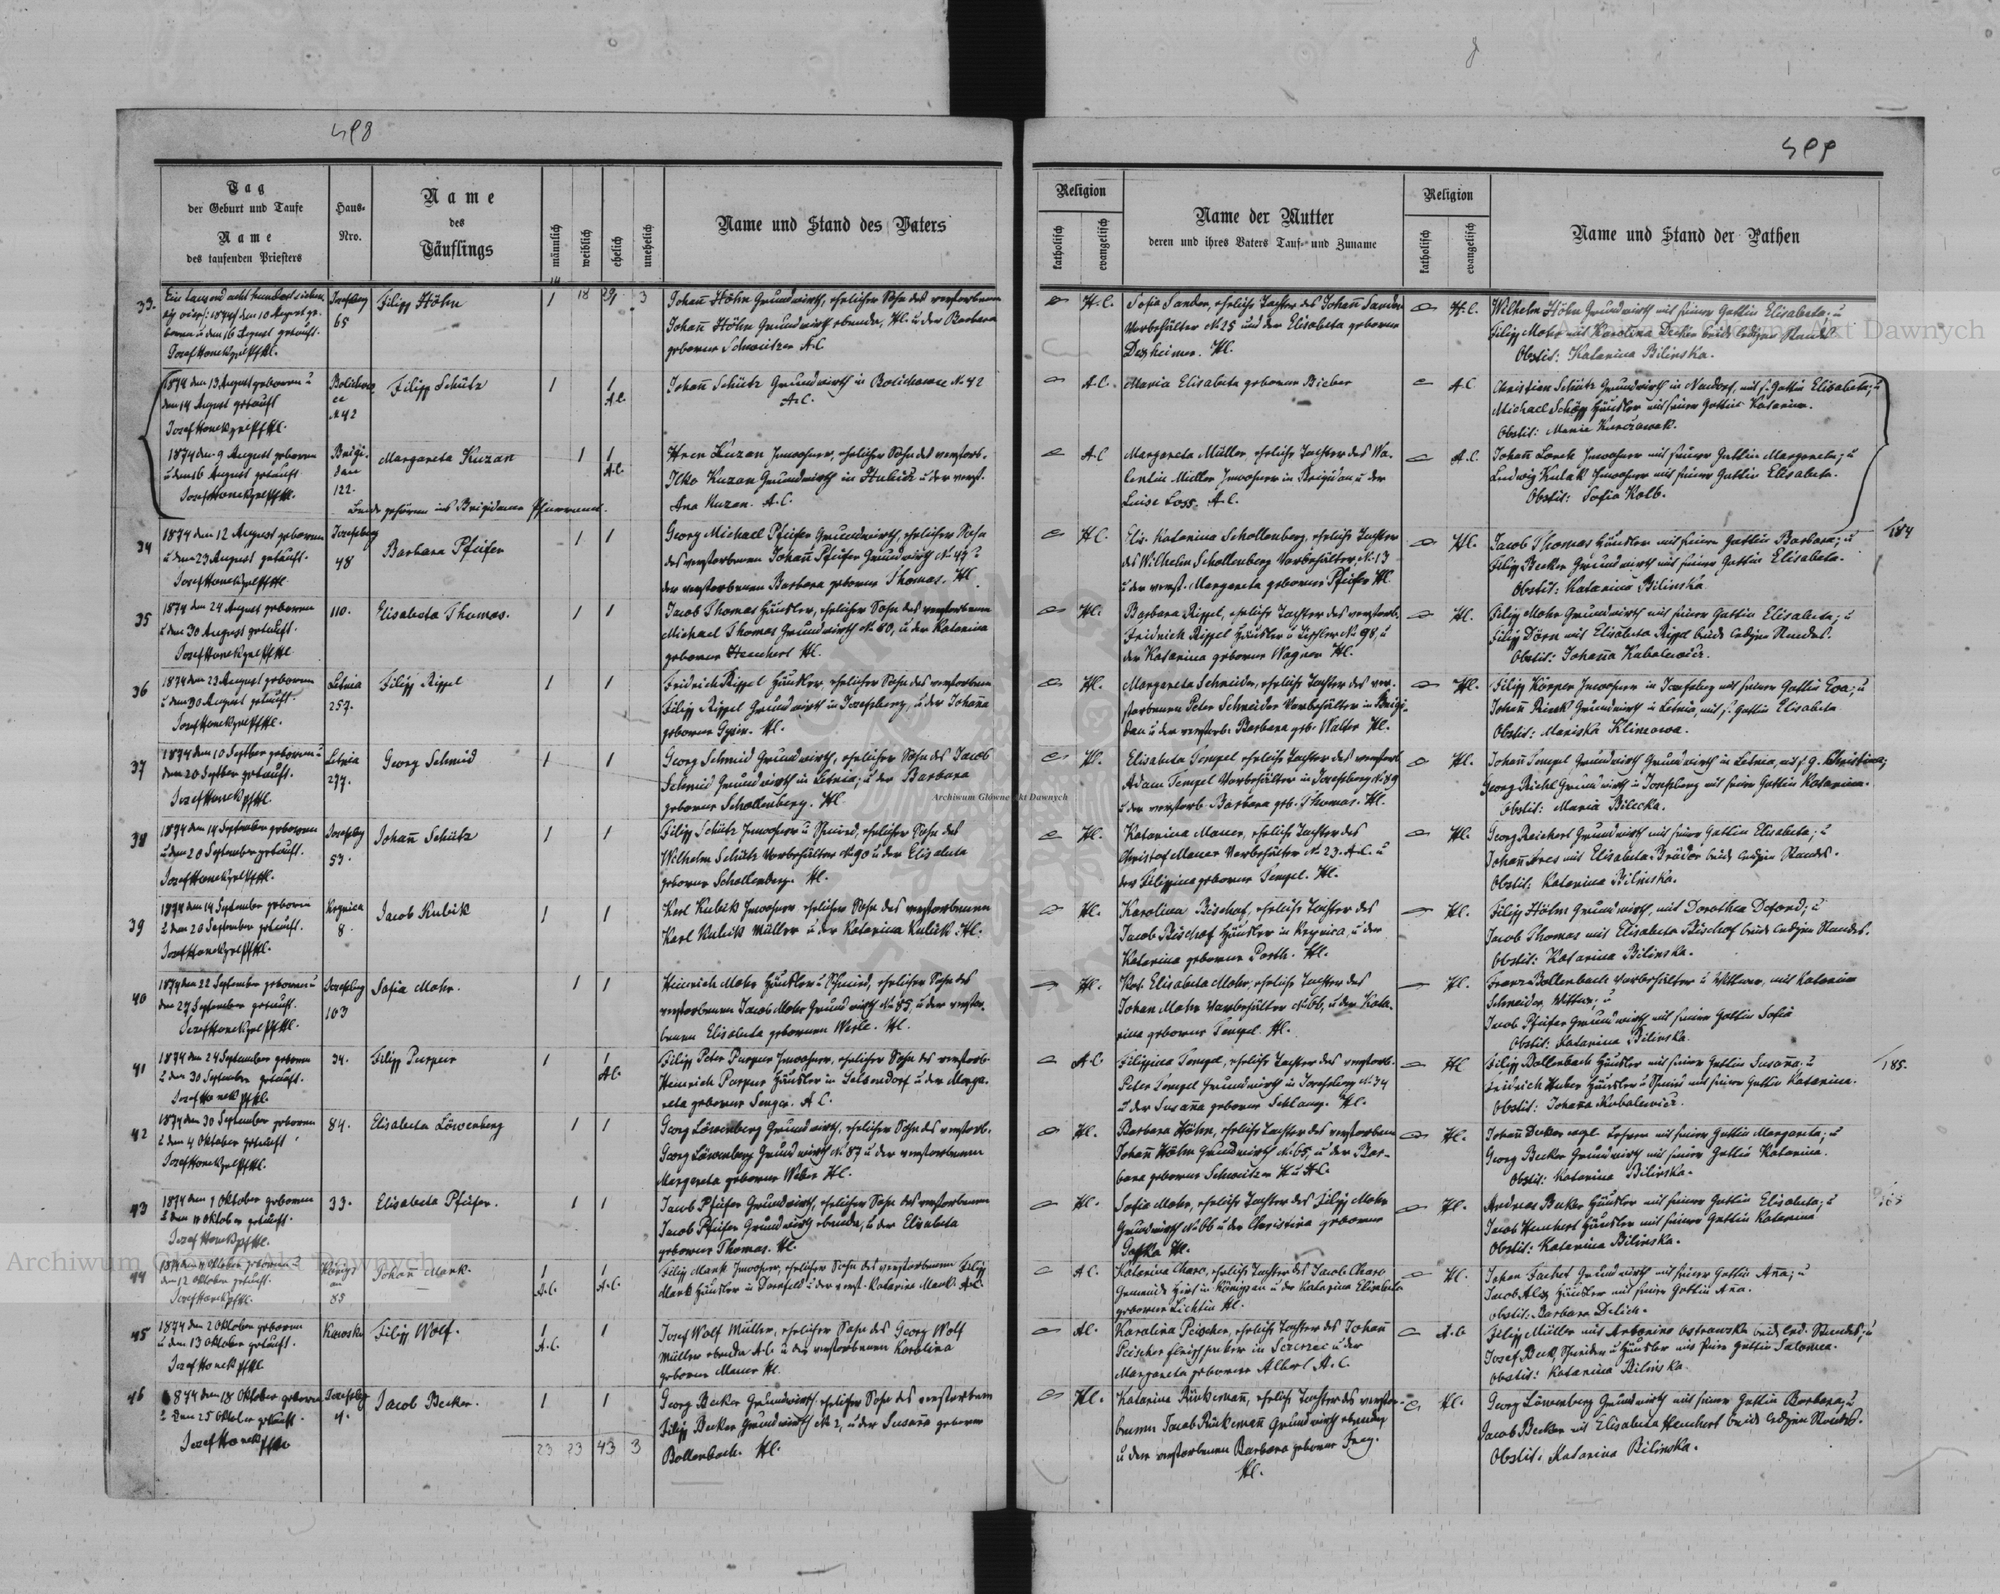 498
499
Tag
der Geburt und Taufe
Name
des taufenden Priesters
Haus-
Nro.
Name
des
Täuflings
männlich
weiblich
ehelich
unehelich
Name und Stand des Vaters
Religion
katholisch
evangelisch
Name der Mutter
deren und ihres Vaters Tauf- und Zuname
Religion
katholisch
evangelisch
Name und Stand der Pathen
14 18 29 3
33.
Josefsberg
65
Filipp Höhn
Johann Höhn Grundwirth, ehelicher Sohn des verstorbenen
Johann Höhn Grundwirth ebenda, H.C. u der Barbara
geborne Schweitzer A.C.
H.C.
Sofia Sander, eheliche Tochter des Johann Sander
Vorbehälter N. 25 und der Elisabeta geborene
Dexheimer. H.C.
H.C.
Wilhelm Höhn Grundwirth mit seiner Gattin Elisabeta; u
Filipp Mohr mit Karolina Decker beide ledigen Standes
Obstit: Katarina Bilinska.
1874 den 13 August geboren u
den 14 August getauft
N 42
Filipp Schütz
A.C.
Johann Schütz Grundwirth in Bolichowce N. 42
A.C.
A.C.
Maria Elisabeta geborene Bieber
A.C.
Christian Schütz Grundwirth in Neudorf, mit s. Gattin Elisabeta; u
Michael Schöpp Häusler mit seiner Gattin Katarina.
Obstit: Maria
1874 den 9 August geboren
u den 16 August getauft
Brigi-
dau
122.
Margareta Kuzan
A.C.
Hren Kuzan Inwohner, ehelicher Sohn des verstorb.
Ilko Kuzan Grundwirth in Hubicz u der verst.
Ana Kuzan. A.C.
A.C.
Margareta Müller, eheliche Tochter des Va-
lentin Müller Inwohner in Brigidau u der
Luise Loss. A.C.
A.C.
Johann Lorch Inwohner mit seiner Gattin Margareta; u
Ludwig Kulak Inwohner mit seiner Gattin Elisabeta.
Obstit: Sofia Kolb.
beide gehören ins Brigidauer Pfarramt.
34
1874 den 12 August geboren
u den 23 August getauft.
Josefsberg
48
Barbara Pfeifer
Georg Michael Pfeifer Grundwirth, ehelicher Sohn
des verstorbenen Johann Pfeifer Grundwirth N. 43
der verstorbenen Barbara geborene Thomas. H.C.
H.C.
Elis. Katarina Schollenberg, eheliche Tochter
des Wilhelm Schollenberg Vorbehälter, N. 13
u der verst. Margareta geborene Pfeifer H.C.
H.C.
Jacob Thomas Häusler mit seiner Gattin Barbara; u
Filipp Becker Grundwirth mit seiner Gattin Elisabeta.
Obstit: Katarina Bilinska
184
35
1874 den 24 August geboren
u den 30 August getauft.
110.
Elisabeta Thomas.
Jacob Thomas Häusler, ehelicher Sohn des verstorbenen
Michael Thomas Grundwirth N. 80, u der Katarina
geborene Henchert H.C.
H.C.
Barbara Rippel, eheliche Tochter des verstorb.
Fridrich Rippel Häusler u Tischler N. 98, u
der Katarina geborene Wagner H.C.
H.C.
Filipp Mohr Grundwirth mit seiner Gattin Elisabeta; u
Filipp Dörn mit Elisabeta Rippel beide ledigen Standes.
Obstit: Johanna Kubalewicz.
36
1874 den 23 August geboren
u den 30 August getauft.
Letnia
257.
Filipp Rippel
Fridrich Rippel Häusler, ehelicher Sohn des verstorbenen
Filipp Rippel Grundwirth in Josefsberg, u der Johanna
H.C.
Margareta Schneider, eheliche Tochter des ver-
storbenen Peter Schneider Vorbehälter in Brigi-
dau u der verstorb. Barbara geb. Walter H.C.
H.C.
Filipp Körper Inwohner in Josefsberg mit seiner Gattin Eva; u
Johann Grundwirth in Letnia, mit s. Gattin Elisabeta
Obstit: Mariska Klimowa.
37
1874 den 10 September geboren u
den 20 September getauft.
Letnia
277.
Georg Schmid
Georg Schmid Grundwirth, ehelicher Sohn des Jacob
Schmid Grundwirth in Letnia, u der Barbara
geborene Schollenberg. H.C.
H.C.
Elisabeta Tempel eheliche Tochter des verstorb
Adam Tempel Vorbehälter in Josefsberg N. 89
u der verstorb. Barbara geb. Thomas. H.C.
H.C.
Johann Tempel Grundwirth in Letnia, mit s. G. Christina;
Georg Grundwirth in Josefsberg mit seiner Gattin Katarina.
Obstit: Maria Bilecka.
38
1874 den 14 September geboren
u den 20 September getauft.
Josefsberg
53.
Johann Schütz
Filipp Schütz Inwohner u Schmied, ehelicher Sohn des
Wilhelm Schütz Vorbehälter N. 90 u der Elisabeta
geborene Schollenberg. H.C.
H.C.
Katarina Mauer, eheliche Tochter des
Christof Mauer Vorbehälter N. 23. A.C. u
der Filippina geborene Tempel. H.C.
H.C.
Georg Reichert Grundwirth mit seiner Gattin Elisabeta; u
Johann mit Elisabeta beide ledigen Standes.
Obstit: Katarina Bilinska.
39
1874 den 14 September geboren
u den 20 September getauft.
8.
Jacob Kubik
Karl Kubik Inwohner, ehelicher Sohn des verstorbenen
Karl Kubik Müller u der Katarina Kubik. H.C.
H.C.
Karolina Bischof, eheliche Tochter des
Jacob Bischof Häusler in u der
Katarina geborene Porth. H.C.
H.C.
Filipp Höhn Grundwirth, mit Dorothea u
Jacob Thomas mit Elisabeta Bischof beide ledigen Standes.
Obstit: Katarina Bilinska.
40
1874 den 22 September geboren u
den 27 September getauft.
Josefsberg
103
Sofia Mohr.
Heinrich Mohr Häusler u Schmied, ehelicher Sohn des
verstorbenen Jacob Mohr Grundwirth N. 85, u der verstor-
benen Elisabeta geborenen Werle. H.C.
H.C.
Kat. Elisabeta Mohr, eheliche Tochter des
Johan Mohr Vorbehälter N. 66, u der Kata-
rina geborene Tempel. H.C.
H.C.
Franz Bollenbach Vorbehälter u Wittwer, mit Katarina
Schneider, Wittwe; u
Jacob Pfeifer Grundwirth mit seiner Gattin Sofia
Obstit: Katarina Bilinska.
41
1874 den 24 September geboren
u den 30 September getauft.
34.
Filipp Purpur
A.C.
Filipp Peter Purpur Inwohner, ehelicher Sohn des verstorb
Heinrich Purpur Häusler in Gelsendorf u der Marga-
reta geborene A.C.
A.C.
Filippina Tempel, eheliche Tochter des verstorb.
Peter Tempel Grundwirth in Josefsberg N. 34
u der Susanna geborene Schlamp. H.C.
H.C.
Filipp Bollenbach Häusler mit seiner Gattin Susanna; u
Fridrich Huber Häusler u Schmied mit seiner Gattin Katarina.
Obstit: Johanna Kubalewicz.
185.
42
1874 den 30 September geboren
u den 4 Oktober getauft.
84.
Elisabeta Löwenberg
Georg Löwenberg Grundwirth, ehelicher Sohn des verstorb.
Georg Löwenberg Grundwirth N. 87 u der verstorbenen
Margareta geborene Weber H.C.
H.C.
Barbara Höhn, eheliche Tochter des verstorbenen
Johann Höhn Grundwirth N. 65, u der Bar-
bara geborene Schweitzer H.C.
H.C.
Johann Decker evgl. Lehrer mit seiner Gattin Margareta; u
Georg Becker Grundwirth mit seiner Gattin Katarina.
Obstit: Katarina Bilinska.
43
1874 den 1 Oktober geboren
u den 11 Oktober getauft.
33.
Elisabeta Pfeifer.
Jacob Pfeifer Grundwirth, ehelicher Sohn des verstorbenen
Jacob Pfeifer Grundwirth ebenda, u der Elisabeta
geborene Thomas. H.C.
H.C.
Sofia Mohr, eheliche Tochter des Filipp Mohr
Grundwirth N. 66 u der Christina geborene
H.C.
H.C.
Andreas Becker Häusler mit seiner Gattin Elisabeta; u
Jacob Henchert Häusler mit seiner Gattin Katarina
Obstit: Katarina Bilinska.
44
den 12 Oktober getauft.
Königs
au
85
Johann Mank.
A.C.
A.C.
Filipp Mank Inwohner, ehelicher Sohn des verstorbenen Filipp
Mank Häusler in Dornfeld u der verst. Katarina Mank. A.C.
A.C.
Katarina Charo, eheliche Tochter des Jacob Charo
Gemeinde Hirt in Königsau u der Katarina Elisabeta
geborene H.C.
H.C.
Johan Grundwirth mit seiner Gattin Anna; u
Jacob Häusler mit seiner Gattin Ana.
Obstit: Barbara
45
1874 den 2 Oktober geboren
u den 13 Oktober getauft.
Filipp Wolf.
A.C.
Josef Wolf Müller, ehelicher Sohn des Georg Wolf
Müller ebenda A.C. u der verstorbenen Karolina
geborene Mauer H.C.
A.C.
Karolina Peischer, eheliche Tochter des Johann
Peischer Fleischhacker in Szczerzec u der
Margareta geborene Albert A.C.
A.C.
Filipp Müller mit Antonina Ostrowska beide led. Standes; u
Josef Beck, Schneider u Häusler mit seiner Gattin Salomea.
Obstit: Katarina Bilinska.
46
1874 den 18 Oktober geboren
u den 25 Oktober getauft.
Josefsberg
Jacob Becker.
Georg Becker Grundwirth, ehelicher Sohn des verstorbenen
Filipp Becker Grundwirth N. 2, u der Susana geborene
Bollenbach. H.C.
H.C.
Katarina Rückemann, eheliche Tochter des verstor-
benen Jacob Rückemann Grundwirth ebenda
u der verstorbenen Barbara geborene Frey.
H.C.
H.C.
Georg Löwenberg Grundwirth mit seiner Gattin Barbara, u
Jacob Becker mit Elisabeta Henchert beide ledigen Standes.
Obstit: Katarina Bilinska.
23 23 43 3
Archiwum Główne Akt Dawnych
Archiwum Główne Akt Dawnych
Archiwum Główne Akt Dawnych